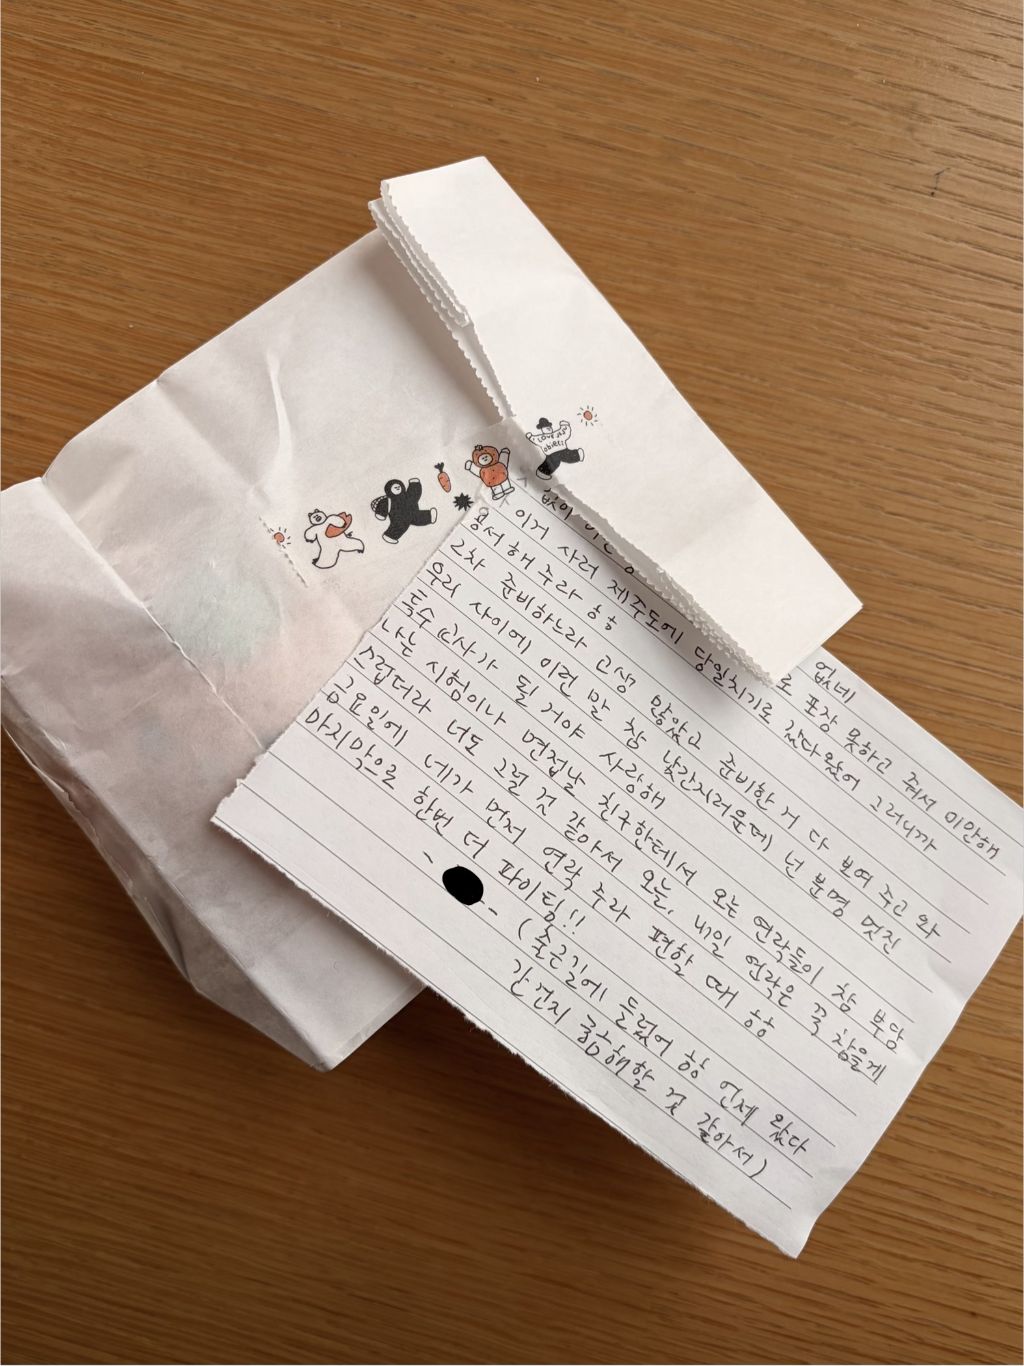 LOVE
object
없이
없네
로 포장 못하고 줘서 미안해
이거 사러 제주도에 당일치기로 갔다왔어 그러니까
용서해 주라 핳
2차 준비하느라 고생 많았고 준비한 거 다 보여 주고 와
우리 사이에 이런 말 참 낯간지러운데 넌 분명 멋진
특수교사가 될 거야 사랑해
나는 시험이나 면접날 친구한테서 오는 연락들이 참 부담
스럽더라 너도 그럴 것 같아서 오늘, 내일 연락은 꼭 참을게
금요일에 네가 먼저 연락 주라 편할 때 핳
마지막으로 한번 더 파이팅!!
(출근길에 들렀어 핳 언제 왔다
간건지 궁금해할 것 같아서)